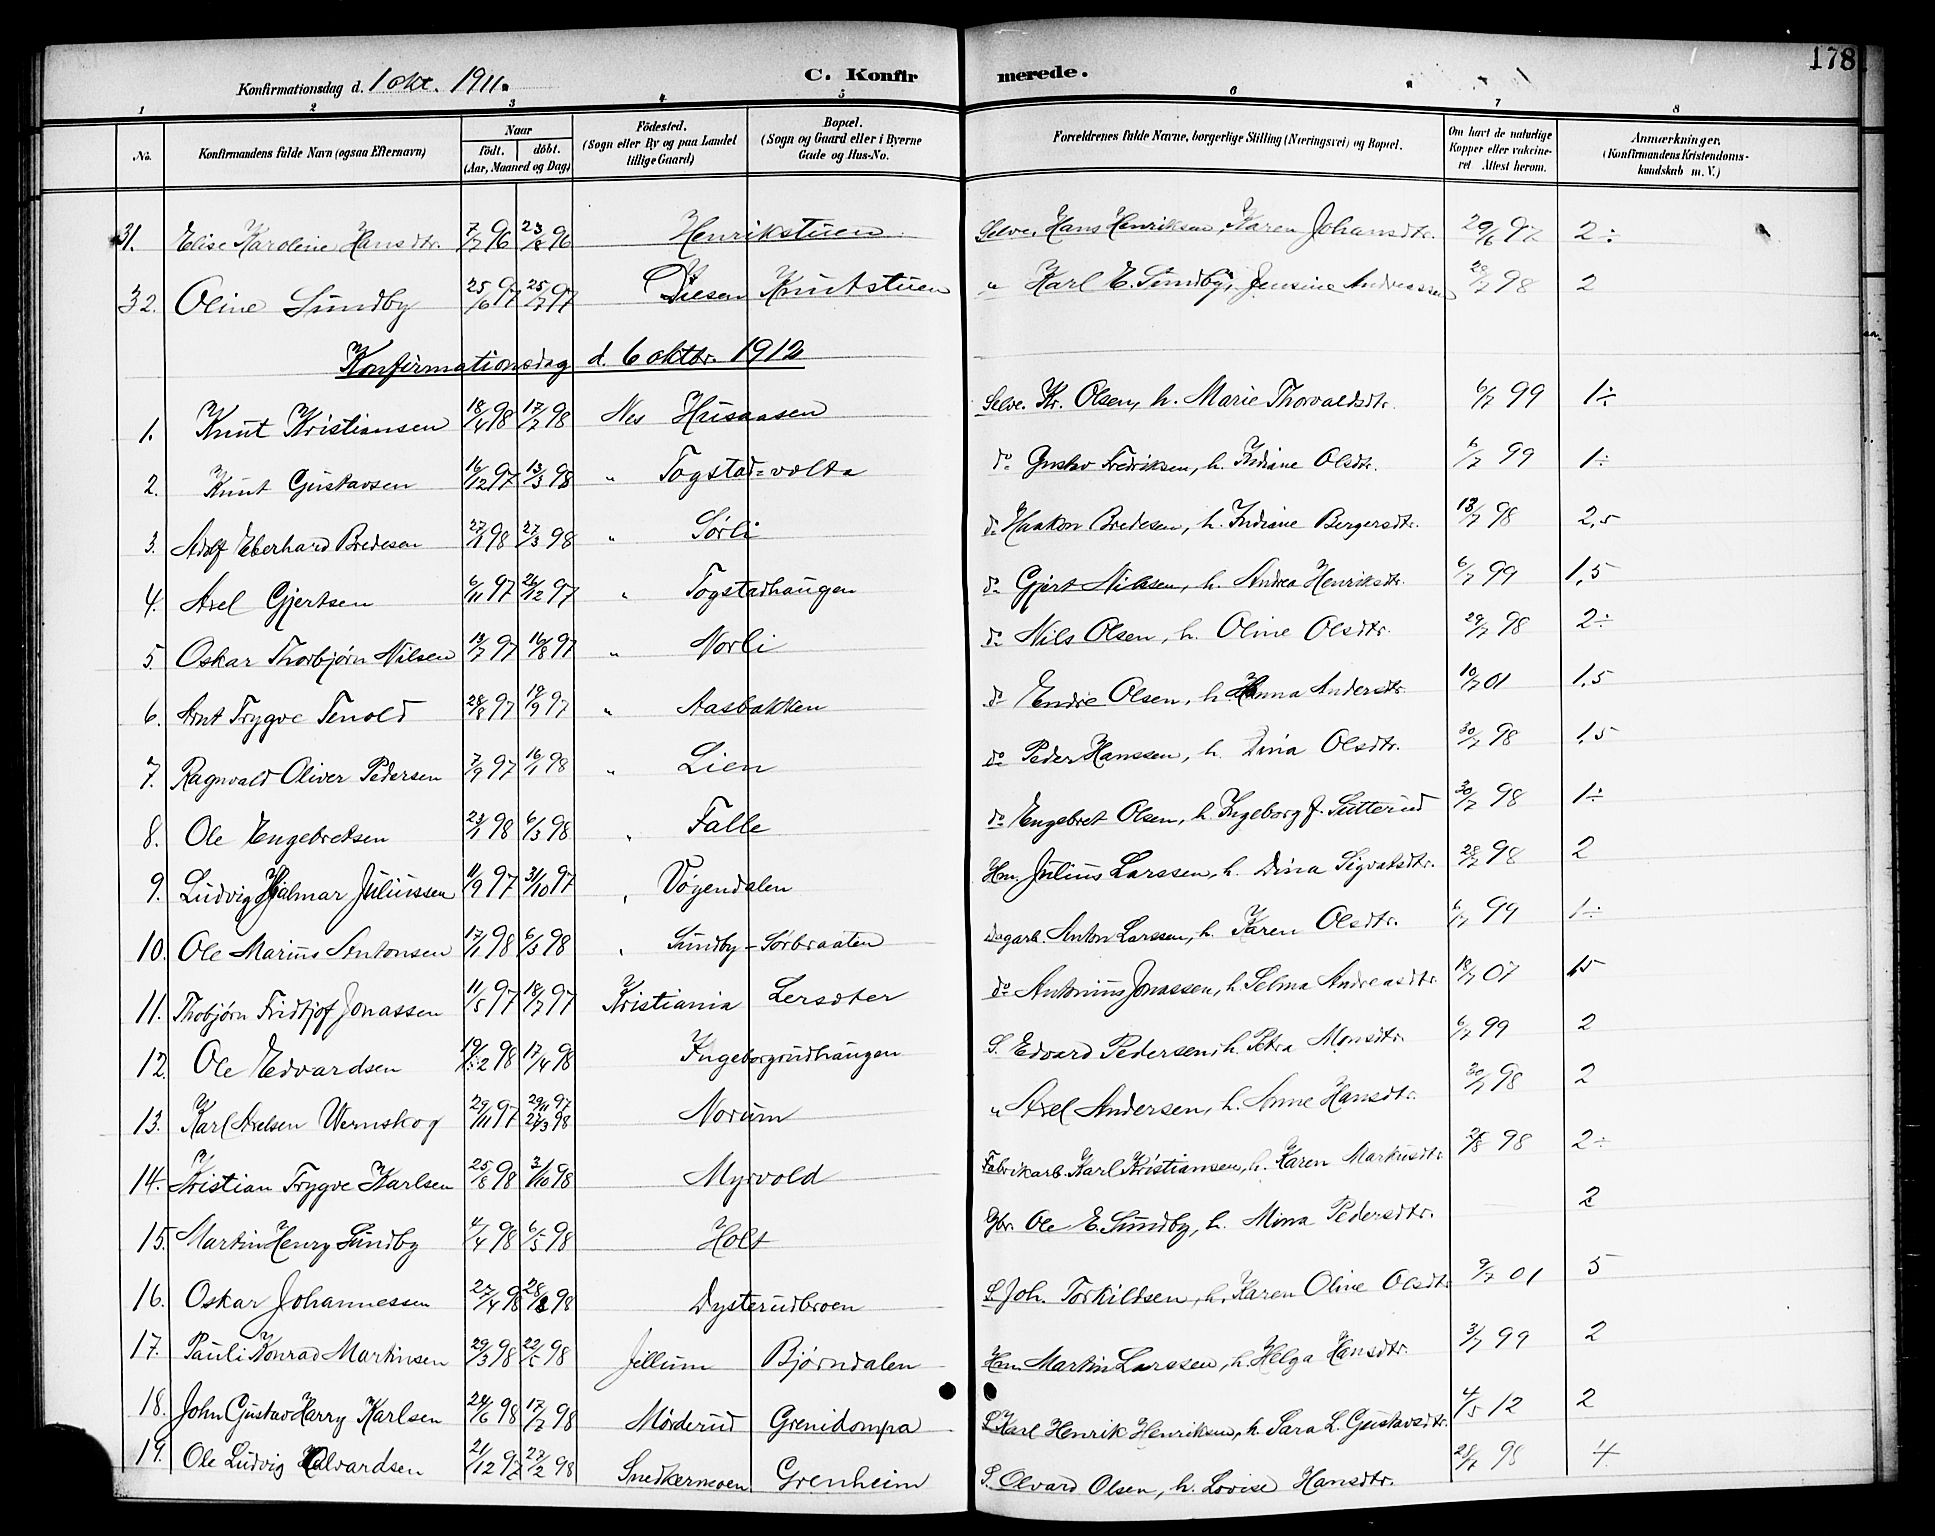 178
Konfirmationsdag d. 1 okt. 1911.
C. Konfirmerede.
1 2 3 4 5 6 7 8
No.
Konfirmandens fulde Navn (ogsaa Efternavn)
Naar
født. døbt.
(Aar, Maaned og Dag)
Födested.
(Sogn eller By og paa Landet
tillige Gaard)
Bopæl.
(Sogn og Gaard eller i Byerne
Gade og Hus-No.
Forældrenes fulde Navne, borgerlige Stilling (Næringsvei) og Bopæl.
Om havt de naturlige
Kopper eller vakcine-
ret Attest herom.
Anmærkninger.
(Konfirmandens Kristendoms-
kundskab m. V.)
31. Elise Karoline Hansdtr. 7/7 96 23/8 96 Henrikstuen Selve. Hans Henriksen, Karen Johansdtr. 29/6 97 2÷
32. Oline Sundby 25/6 97 25/7 97 Diesen Knutstuen " Karl E. Sundby, Jensine Andreassen 98 2
Konfirmationsdag d. 6 oktbr. 1912
1. Knut Kristiansen 18/4 98 17/7 98 Nes Husaasen Selve. Kr. Olsen, h. Marie Thorvaldsdtr. 6/7 99 1÷
2. Knut Gustavsen 16/12 97 13/3 98 " Togstad=volta do Gustav Fredriksen, h. Indiane Olsdtr. 6/7 99 1÷
3. Adolf Eberhard Bredesen 27/1 98 27/3 98 " Sørli do Haakon Bredesen, h. Indiane Bergersdtr. 13/7 98 2,5
4. Axel Gjertsen 6/11 97 26/12 97 " Togstadhaugen do Gjert Nilsen, h. Andrea Henriksdtr. 6/7 99 1,5
5. Oskar Thorbjørn Nilsen 13/7 97 16/8 97 " Norli do Nils Olsen, h. Oline Olsdtr. 29/7 98 2÷
6. Arnt Trygve Tenold 28/8 97 19/9 97 " Aasbakken do Endre Olsen, h. Hanna Andersdtr. 10/7 01 1,5
7. Ragnvald Oliver Pedersen 7/9 97 16/1 98 " Lien do Peder Hanssen, h. Dina Olsdtr. 30/7 98 1,5
8. Ole Engebretsen 23/1 98 6/3 98 " Falle do Engebret Olsen, h. Ingeborg f. Sutterud 30/7 98 1÷
9. Ludvig Hjalmar Juliussen 11/9 97 31/10 97 " Vøyendalen Hm. Julius Larssen, h. Dina Sigvatsdtr. 28/7 98 2
10. Ole Marius Antonsen 17/1 98 6/3 98 " Sundby-Sørbraaten Dagarb. Anton Larssen, h. Karen Olsdtr. 6/7 99 1÷
11. Thobjørn Fridtjof Jonassen 11/5 97 18/7 97 Kristiania Lersdter do Antonius Jonassen, h. Selma Andreasdtr. 18/7 07 1,5
12. Ole Edvardsen 98 17/4 98 Ingeborgrudhaugen S. Edvard Pedersen, h. Petra Monsdtr. 6/7 99 2
13. Karl Axelsen Wernskog 29/11 97 29/11 97 27/3 98 Norum " Axel Andersen, h. Anne Hansdtr. 30/7 98 2
14. Kristian Trygve Karlsen 25/8 98 3/10 98 Myrvold Fabrikarb. Karl Kristiansen, h. Karen Markusdtr. 98 2÷
15. Martin Henry Sundby 4/4 98 6/5 98 Holt Gbr. Ole E. Sundby, h. Mina Pedersdtr. 2
16. Oskar Johannessen 27/4 98 98 Dysterudbroen S. Joh. Torkildsen, h. Karen Oline Olsdtr. 9/7 01 5
17. Pauli Konrad Martinsen 29/3 98 22/5 98 Jillum Bjørndalen Hm. Martin Larssen, h. Helga Hansdtr. 3/7 99 2
18. John Gustav Harry Karlsen 24/6 98 17/7 98 Mørderud Grenidompa S. Karl Henrik Henriksen, h. Sara L. Gustavsdtr. 4/5 12 2
19. Ole Ludvig Olvardsen 21/12 97 27/2 98 Snedkermoen Grenheim S. Olvard Olsen, h. Lovise Hansdtr. 98 4